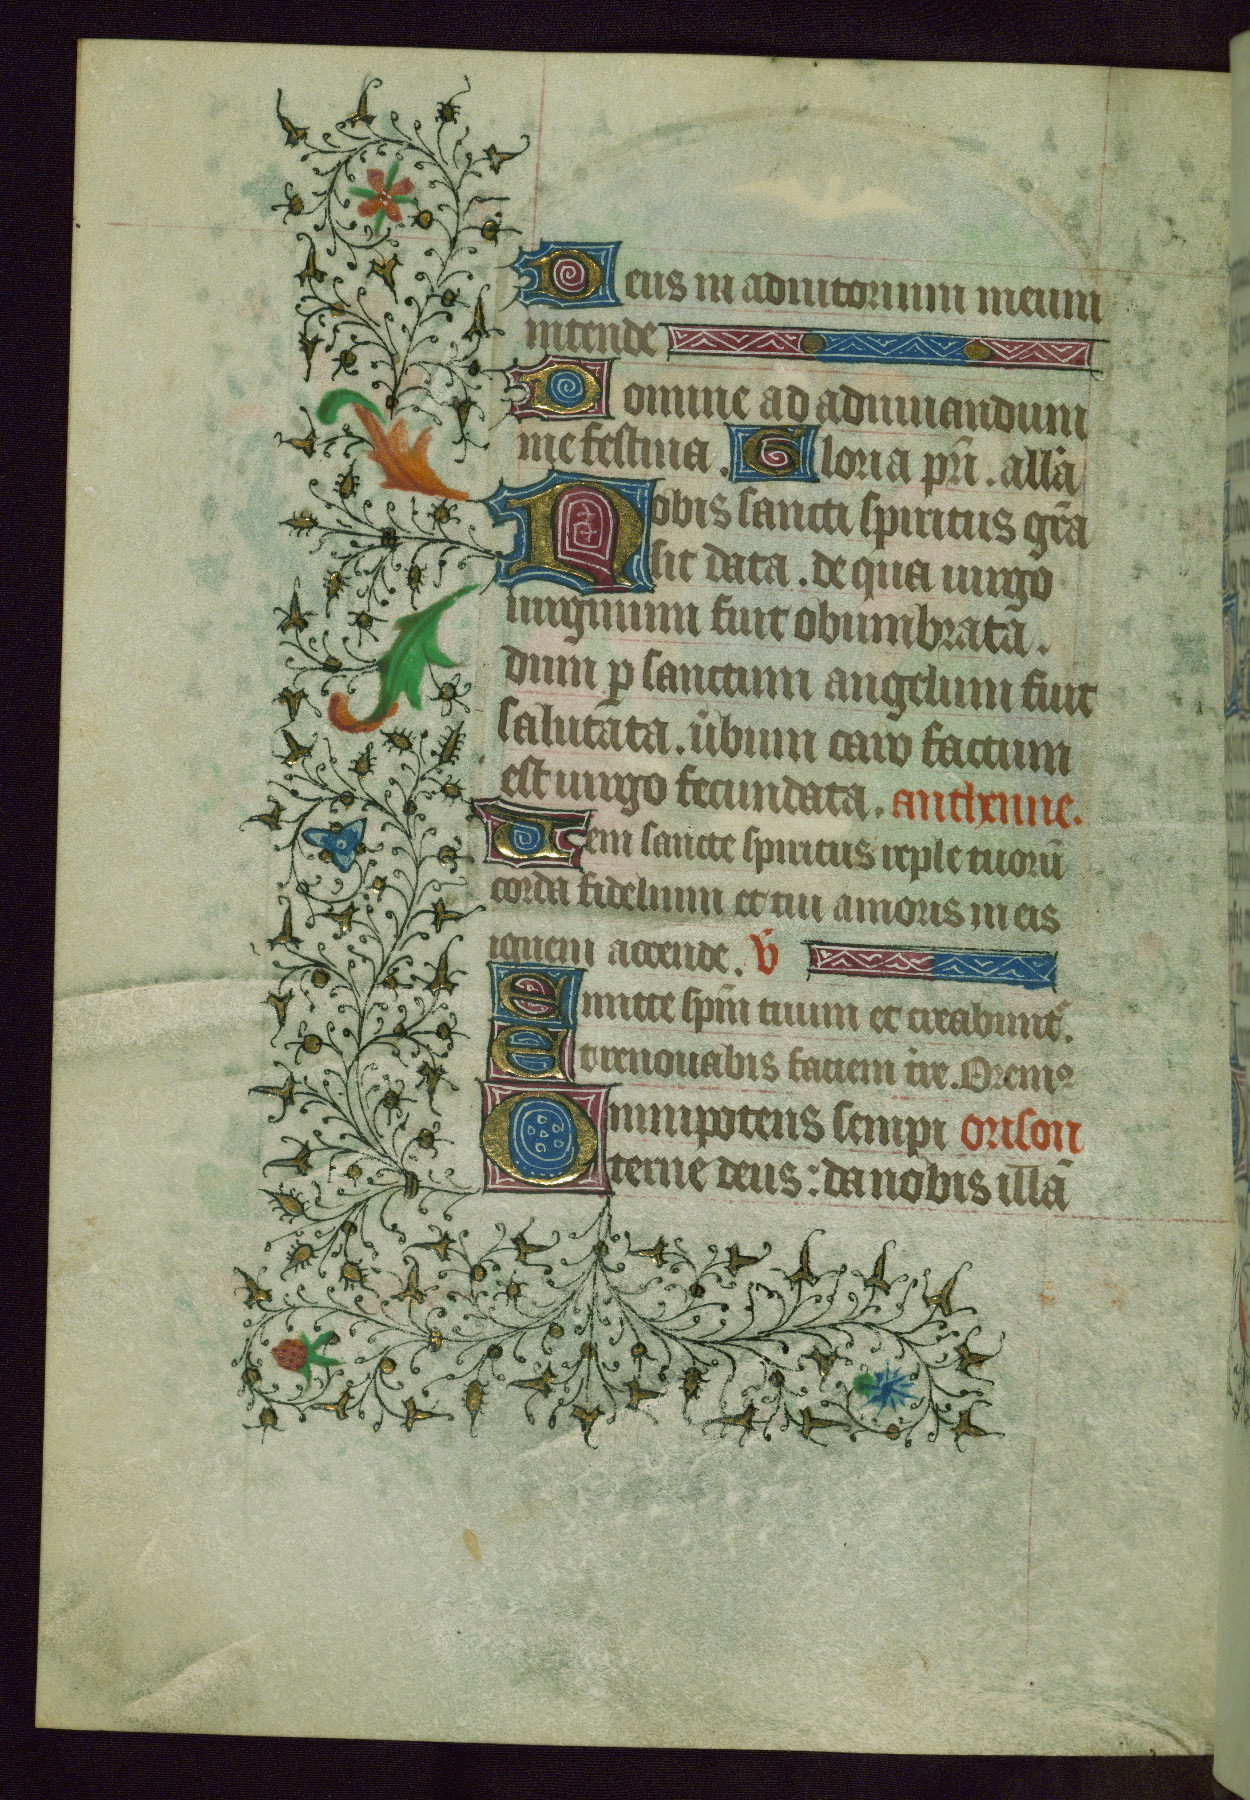 Deus in adiutorium meum
intende
Domine ad adiuuandum
me festina. Gloria pr̄i. all̄a
Nobis sancti spiritus gr̄a
sit data. de qua uirgo
uirginum fuit obumbrata.
dum p sanctum angelum fuit
salutata. u̇bum caro factum
est uirgo fecundata. anthenne.
Ueni sancte spiritus reple tuorū
corda fidelium et tui amoris in eis
ignem accende. v̄
Emitte sp̄m tuum et creabunt᷑.
Et renouabis faciem t̄re. Oremꝰ
Omnipotens sempi orison
terne deus: da nobis illā